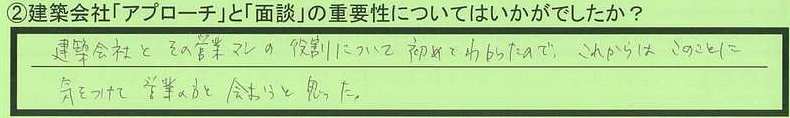 ②建築会社「アプローチ」と「面談」の重要性についてはいかがでしたか？
建築会社とその営業マンの役割について初めてわかったので、これからはこのことに
気をつけて営業の方と会おうと思った。